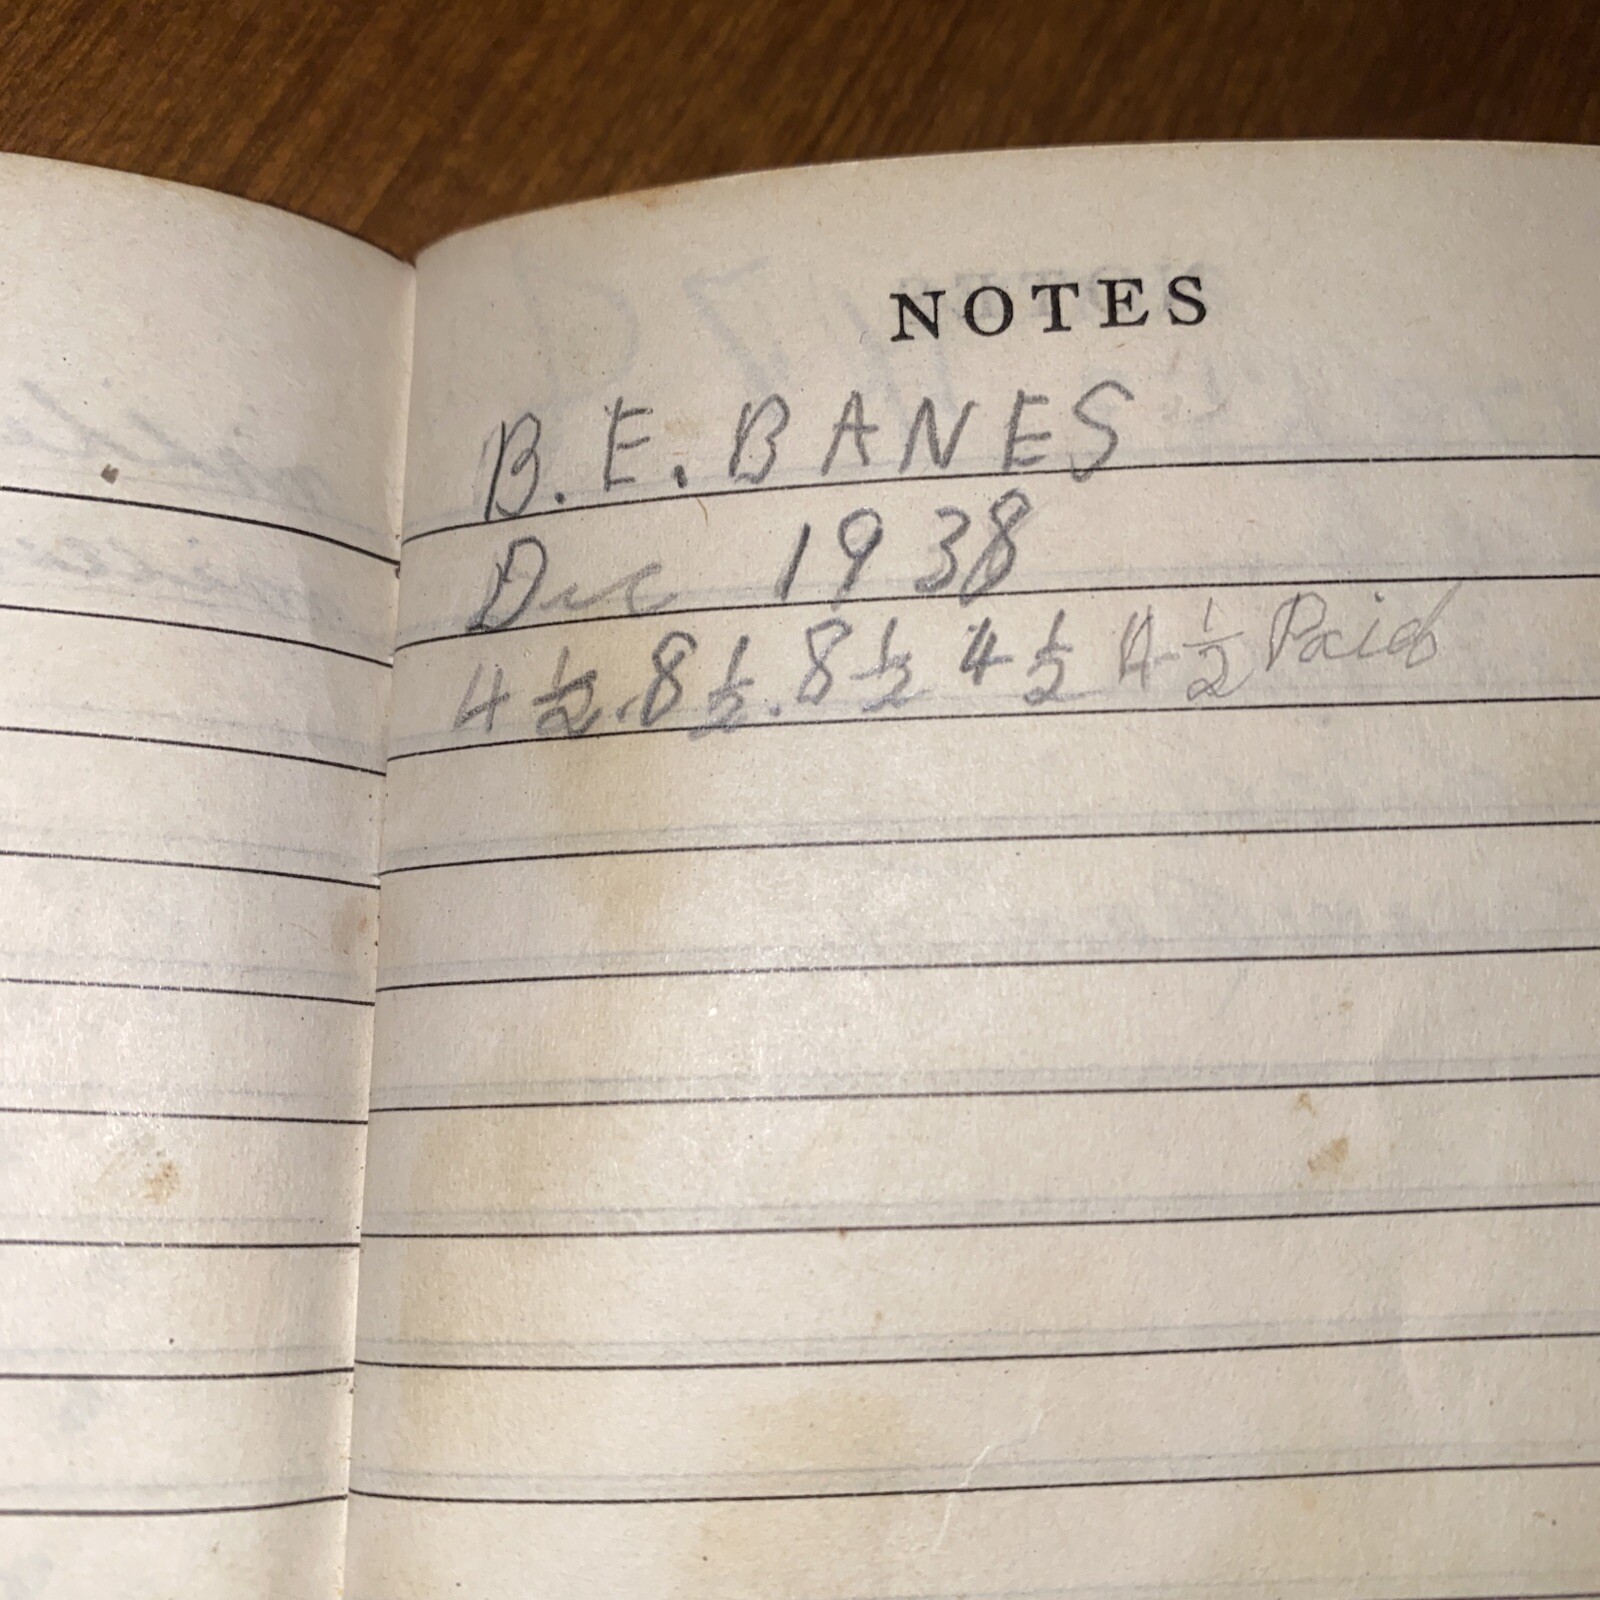 NOTES
B. E. BANES
Dec 1938
4 1/2 . 8 1/2 . 8 1/2 4 1/2 4 1/2 Paid